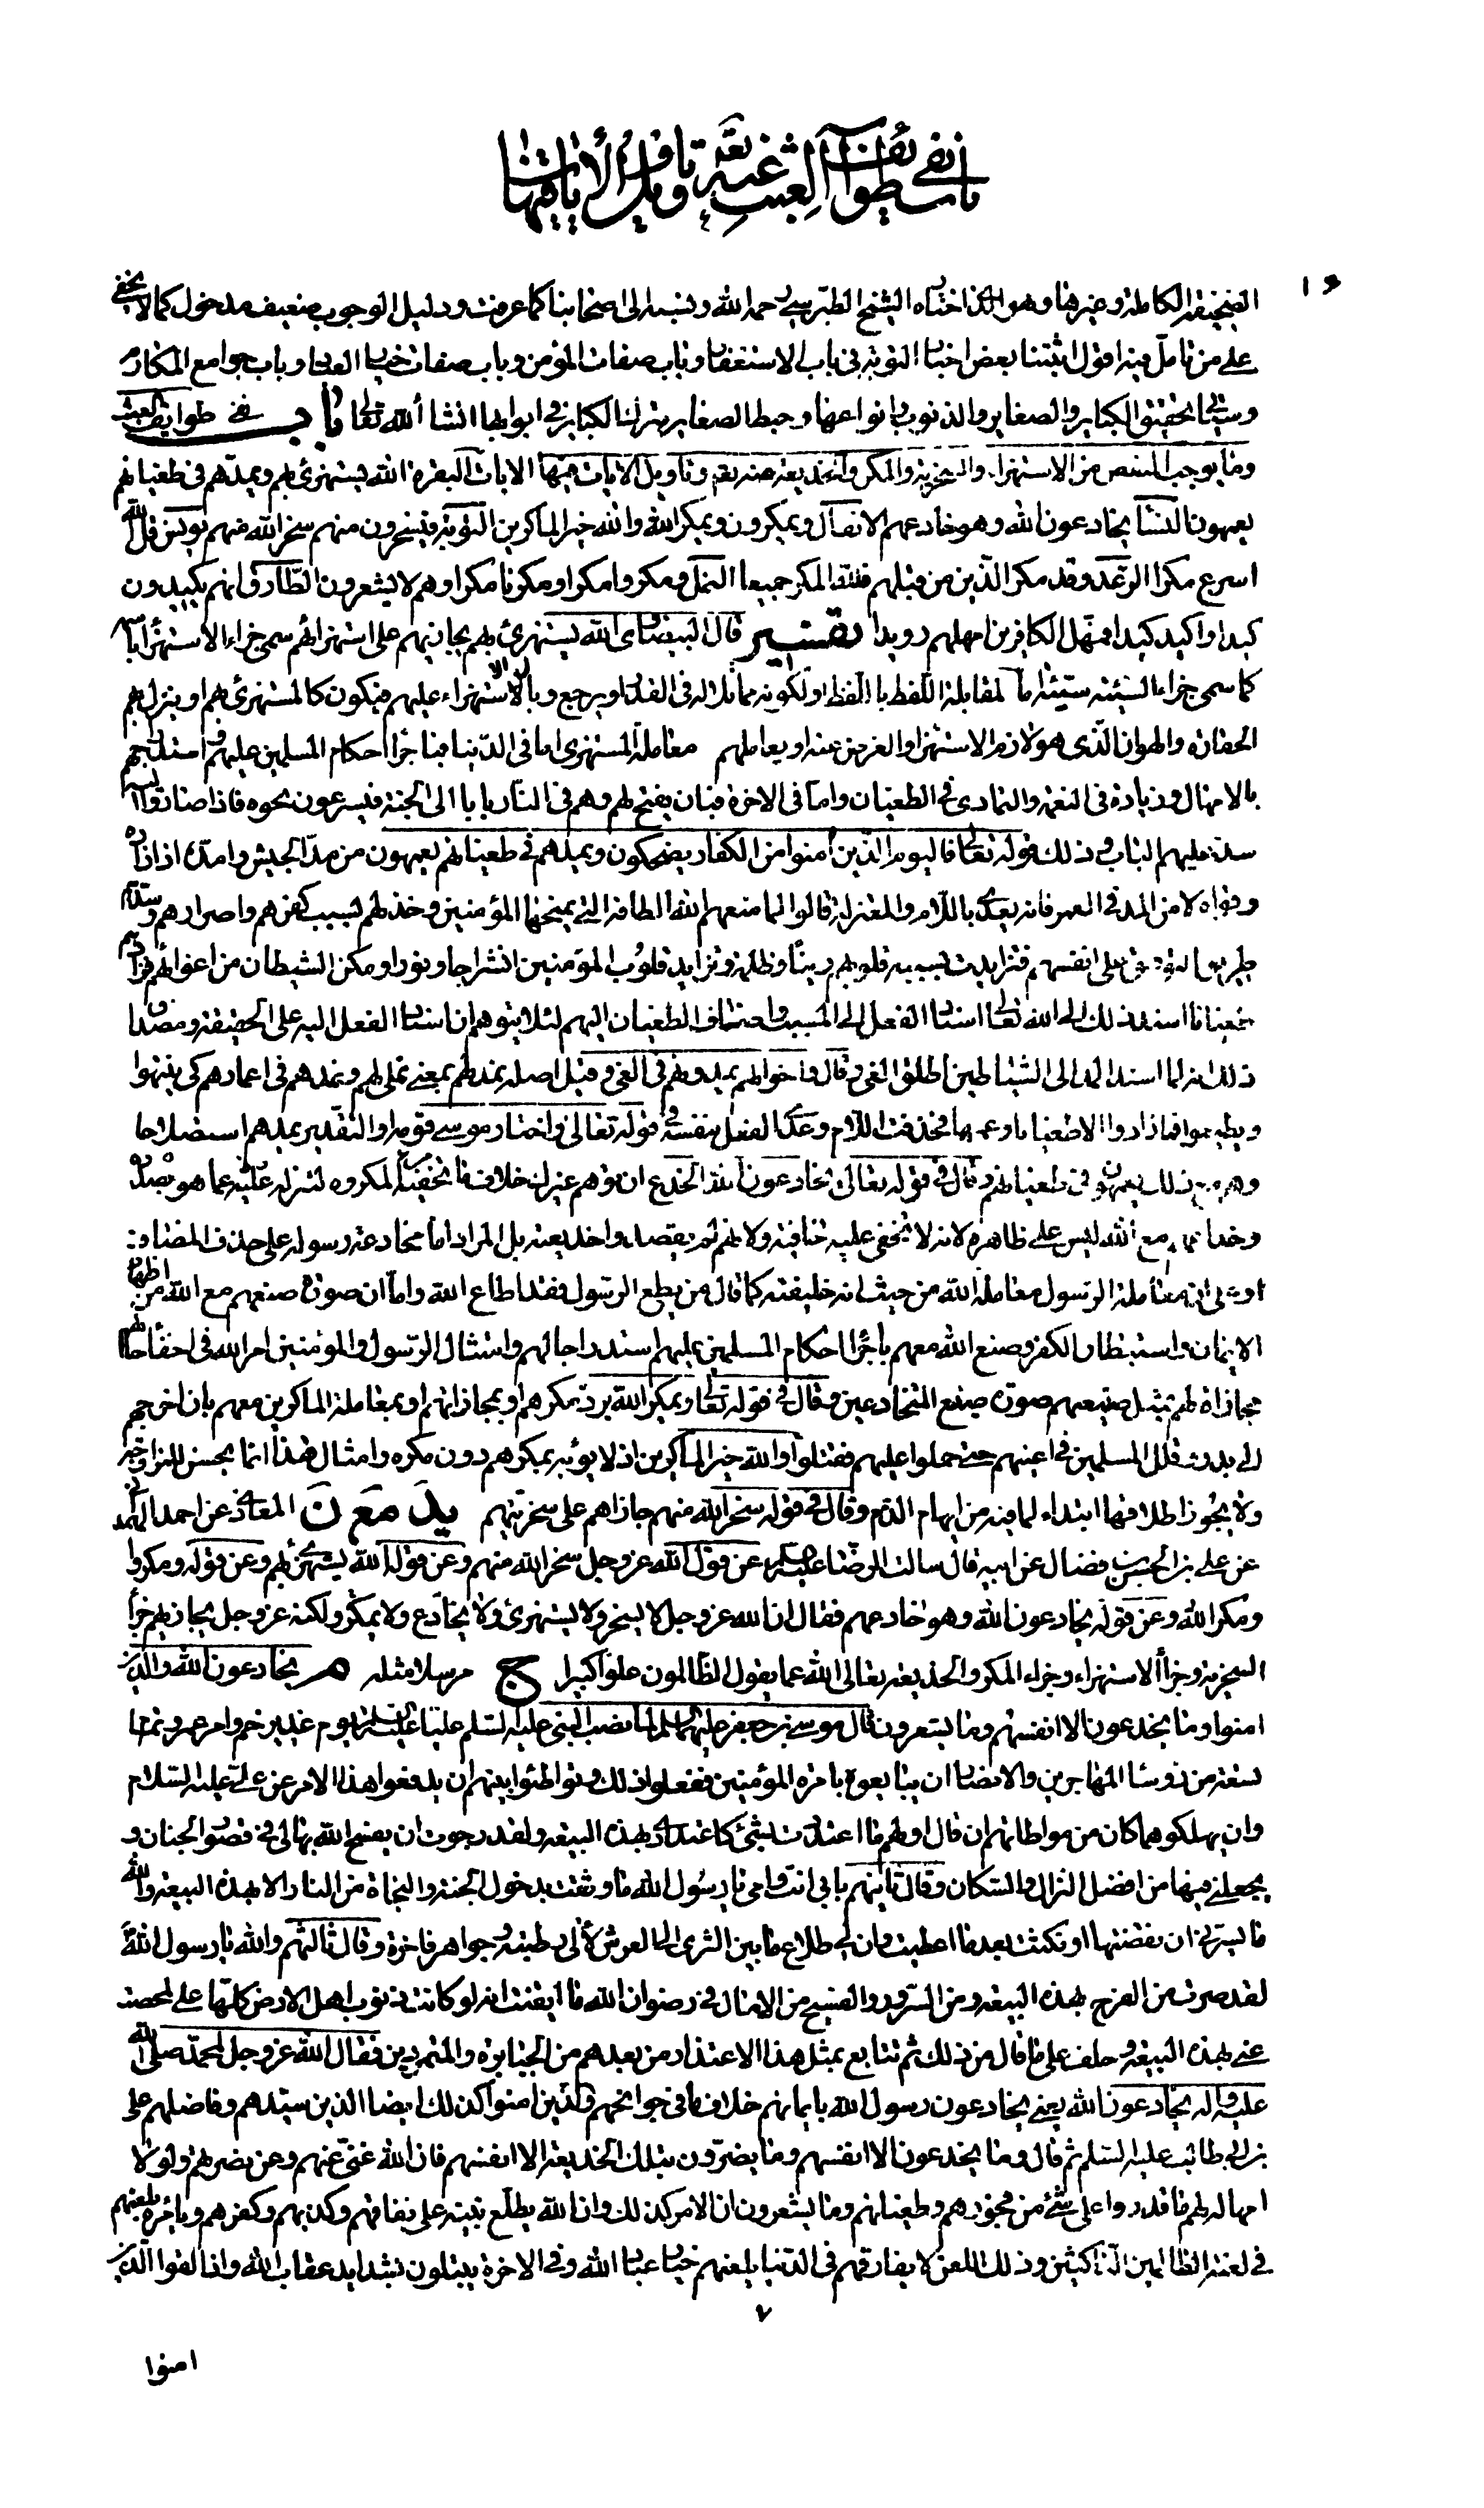 باب نفى العبث وما يوجب النقص عنه تعالى وتاويل الايات فيها
١٠٦
الصحيفة الكاملة وغيرها وهو الذى اختاره الشيخ الطبرسي رحمه الله ونسبه الى اصحابنا كما عرفت ودليل الوجوب ضعيف مدخول كما لا يخفى
على من تامل فيه اقول اثبتنا بعض اخبار التوبة فى باب الاستغفار وباب صفات المؤمن وباب صفات خيار العباد وباب جوامع المكارم
وسياتى تحقيق الكباير والصغاير والذنوب وانواعها وحبط الصغاير بترك الكباير فى ابوابها انشاء الله تعالى باب نفى العبث
وما يوجب النقص من الاستهزاء والسخرية والمكر والخديعة عنه تعالى وتاويل الايات فيها الايات البقرة الله يستهزئ بهم ويمدهم فى طغيانهم
يعمهون النساء يخادعون الله وهو خادعهم الانفال ويمكرون ويمكر الله والله خير الماكرين التوبة فيسخرون منهم سخر الله منهم يونس قل الله
اسرع مكرا الرعد وقد مكر الذين من قبلهم فلله المكر جميعا النمل ومكروا مكرا ومكرنا مكرا وهم لا يشعرون الطارق انهم يكيدون
كيدا واكيد كيدا فمهل الكافرين امهلهم رويدا تفسير قال البيضاوى الله يستهزئ بهم يجازيهم على استهزائهم سمى جزاء الاستهزاء باسمه
كما سمى جزاء السيئة سيئة اما لمقابلة اللفظ باللفظ او لكونه مماثلا له فى القدر او يرجع وبال الاستهزاء عليهم فيكون كالمستهزئ بهم او ينزل بهم
الحقارة والهوان الذى هو لازم الاستهزاء والغرض منه او يعاملهم معاملة المستهزئ اما فى الدنيا فباجراء احكام المسلمين عليهم واستدراجهم
بالامهال وزيادة فى النعمة والتمادى فى الطغيان واما فى الاخرة فبان يفتح لهم وهم فى النار بابا الى الجنة فيسرعون نحوه فاذا صاروا اليه
سد عليهم الباب وذلك قوله تعالى فاليوم الذين امنوا من الكفار يضحكون ويمدهم فى طغيانهم يعمهون من مد الجيش وامده اذا زاده
وقواه لا من المد فى العمر فانه يعدى باللام والمعتزلة قالوا لما منعهم الله الطافه التى يمنحها المؤمنين وخذلهم بسبب كفرهم واصرارهم وسدهم
طريق التوفيق على انفسهم فتزايدت بسببه قلوبهم رينا وظلمة وتزايد قلوب المؤمنين انشراحا ونورا ومكن الشيطان من اغوائهم فزادهم
طغيانا اسند ذلك الى الله تعالى اسناد الفعل الى المسبب واضاف الطغيان اليهم لئلا يتوهم ان اسناد الفعل اليه على الحقيقة ومصداق
ذلك انه لما اسند المد الى الشياطين اطلق الغى وقال واخوانهم يمدونهم فى الغى وقيل اصله نمد لهم بمعنى نملى لهم ونمد فى اعمارهم كى ينتبهوا
ويطيعوا فما زادوا الا طغيانا وعمها فحذفت اللام وعدى الفعل بنفسه كما فى قوله تعالى واختار موسى قومه او التقدير يمدهم استصلاحا
وهم مع ذلك يعمهون فى طغيانهم وقال فى قوله تعالى يخادعون الله الخدع ان توهم غيرك خلاف ما تخفيه من المكروه لتنزله عما هو بصدده
وخداعهم مع الله ليس على ظاهره لانه لا يخفى عليه خافية ولانهم لم يقصدوا خديعته بل المراد اما مخادعة رسوله على حذف المضاف
او على ان معاملة الرسول معاملة الله من حيث انه خليفته كما قال من يطع الرسول فقد اطاع الله واما ان صورة صنعهم مع الله من اظهار
الايمان واستبطان الكفر وصنع الله معهم باجراء احكام المسلمين عليهم استدراجا لهم وامتثال الرسول والمؤمنين امر الله فى اخفاء حالهم
مجازاة لهم بمثل صنيعهم صورة صنيع المتخادعين وقال فى قوله تعالى ويمكر الله برد مكرهم او بمجازاتهم او بمعاملة الماكرين معهم بان اخرجهم
الى بدر وقلل المسلمين فى اعينهم حتى حملوا عليهم فقتلوا والله خير الماكرين اذ لا يؤبه بمكرهم دون مكره وامثال هذا انما يحسن للمزاوجة
ولا يجوز اطلاقها ابتداء لما فيه من ايهام الذم وقال فى قوله سخر الله منهم جازاهم على سخريتهم يد مع ن المعاذى عن احمد الهمدانى
عن على بن الحسن بن فضال عن ابيه قال سالت الرضا عليه السلم عن قول الله عز وجل سخر الله منهم وعن قوله الله يستهزئ بهم وعن قوله ومكروا
ومكر الله وعن قوله يخادعون الله وهو خادعهم فقال ان الله عز وجل لا يسخر ولا يستهزئ ولا يخادع ولا يمكر ولكنه عز وجل يجازيهم جزاء
السخرية وجزاء الاستهزاء وجزاء المكر والخديعة تعالى الله عما يقول الظالمون علوا كبيرا ج مرسلا مثله م يخادعون الله والذين
امنوا وما يخدعون الا انفسهم وما يشعرون قال موسى بن جعفر عليهما السلم لما نصب النبى عليه السلم عليا عليه السلم يوم غدير خم وامر عمر وتمام
تسعة من رؤساء المهاجرين والانصار ان يبايعوه بامرة المؤمنين ففعلوا ذلك وتواطئوا بينهم ان يدفعوا هذا الامر عن على عليه السلام
وان يهلكوهما كان من مواطاتهم ان قال اولهم ما اعتددت بشئ كاعتدادى بهذه البيعة ولقد رجوت ان يفسح الله بها لى فى قصور الجنان و
يجعلنى فيها من افضل النزال والسكان وقال ثانيهم بابى انت وامى يا رسول الله ما وثقت بدخول الجنة والنجاة من النار الا بهذه البيعة والله
ما يسرنى ان نقضتها او نكثت بعد ما اعطيت وان لى طلاع ما بين الثرى الى العرش لآلى رطبة وجواهر فاخرة وقال ثالثهم والله يا رسول الله
لقد صرت من الفرح بهذه البيعة ومن السرور والفسيح من الامال فى رضوان الله ما ايقنت انه لو كانت ذنوب اهل الارض كلها على لمحصت
عنى بهذه البيعة وحلف على ما قال من ذلك ثم تتابع بمثل هذا الاعتذار من بعدهم من الجبابرة والمتمردين فقال الله عز وجل لمحمد صلى الله
عليه واله يخادعون الله يعنى يخادعون رسول الله بايمانهم خلاف ما فى جوانحهم والذين امنوا كذلك ايضا الذين سيدهم وفاضلهم على
بن ابى طالب عليه السلم ثم قال وما يخدعون الا انفسهم وما يضرون بتلك الخديعة الا انفسهم فان الله غنى عنهم وعن نصرتهم ولولا
امهاله لهم ما قدروا على شئ من فجورهم وطغيانهم وما يشعرون ان الامر كذلك وان الله يطلع نبيه على نفاقهم وكذبهم وكفرهم ويامره بلعنهم
فى لعنة الظالمين الناكثين وذلك اللعن لا يفارقهم فى الدنيا يلعنهم خيار عباد الله وفى الاخرة يبتلون بشدايد عقاب الله واذا لقوا الذين
٧
امنوا